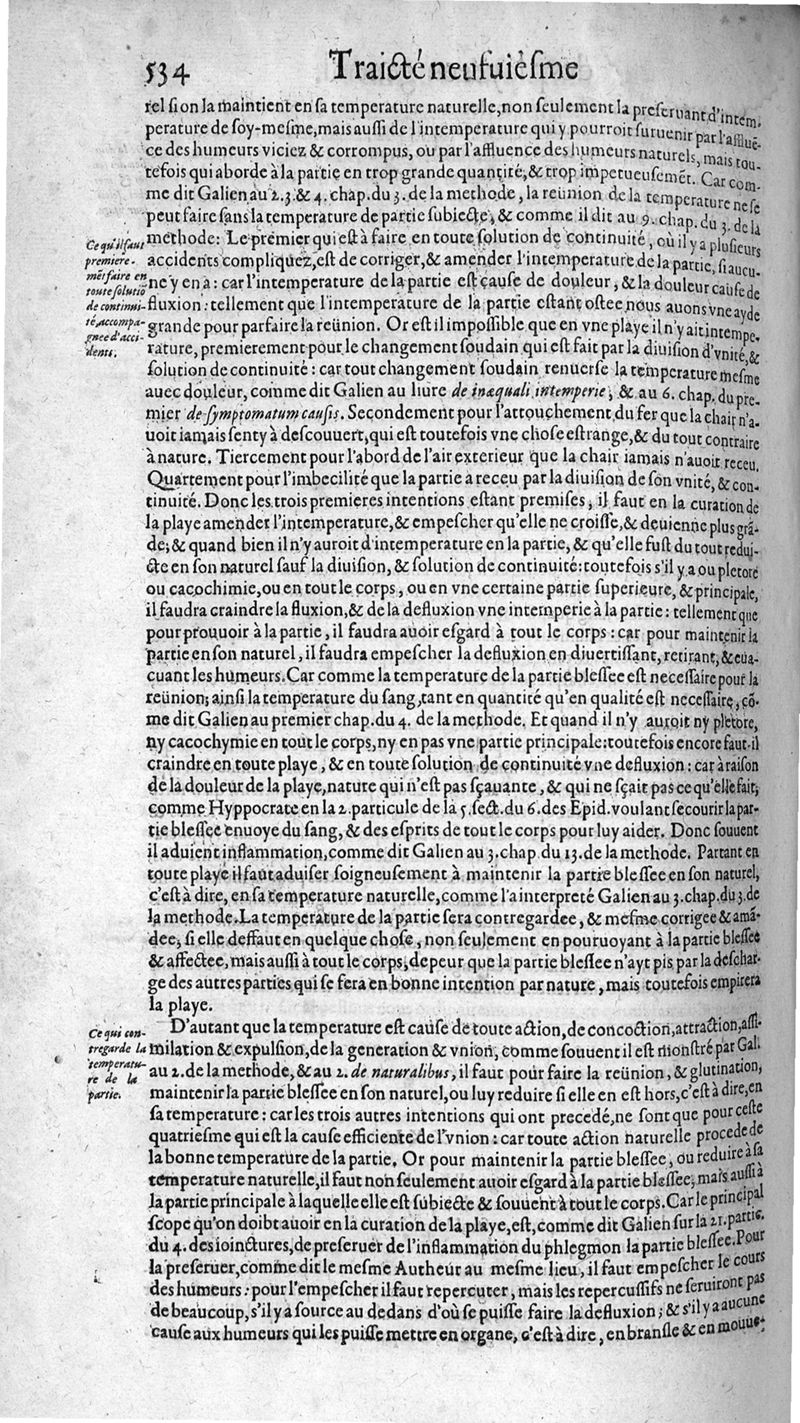 534 Traicté neufuiésme
rel si on la maintient en sa temperature naturelle, non seulement la preseruant d'intem-
perature de soy-mesme, mais aussi de l'intemperature qui y pourroit suruenir par l'affluē-
ce des humeurs viciez & corrompus, ou par l'affluence des humeurs naturels, mais tou-
tefois qui aborde à la partie en trop grande quantité, & trop impetueusemēt. Car com-
me dit Galien au 2.3. & 4. chap. du 3. de la methode, la reünion de la temperature ne se
peut faire sans la temperature de partie subiecte, & comme il dit au 9. chap. du 3. de la
methode: Le premier qui est à faire en toute solution de continuité, où il y a plusieurs
accidents compliquez, est de corriger, & amender l'intemperature de la partie, si aucu-
ne y en a: car l'intemperature de la partie est cause de douleur, & la douleur cause de
fluxion: tellement que l'intemperature de la partie estant ostee, nous auons vne ayde
grande pour parfaire la reünion. Or est il impossible que en vne playe il n'y ait intempe-
rature, premierement pour le changement soudain qui est fait par la diuision d'vnité, &
solution de continuité: car tout changement soudain renuerse la temperature mesme
auec douleur, comme dit Galien au liure de inæquali intemperie, & au 6. chap. du pre-
mier de symptomatum causis. Secondement pour l'attouchement du fer que la chair n'a-
uoit iamais senty à descouuert, qui est toutefois vne chose estrange, & du tout contraire
à nature. Tiercement pour l'abord de l'air exterieur que la chair iamais n'auoit receu.
Quartement pour l'imbecilité que la partie a receu par la diuision de son vnité, & con-
tinuité. Donc les trois premieres intentions estant premises, il faut en la curation de
la playe amender l'intemperature, & empescher qu'elle ne croisse, & deuienne plus grā-
de; & quand bien il n'y auroit d'intemperature en la partie, & qu'elle fust du tout redui-
cte en son naturel sauf la diuision, & solution de continuité: toutefois s'il y a ou pletore
ou cacochimie, ou en tout le corps, ou en vne certaine partie superieure, & principale,
il faudra craindre la fluxion, & de la defluxion vne intemperie à la partie: tellement que
pour prouuoir à la partie, il faudra auoir esgard à tout le corps: car pour maintenir la
partie en son naturel, il faudra empescher la defluxion en diuertissant, retirant, & eua-
cuant les humeurs. Car comme la temperature de la partie blessee est necessaire pour la
reünion; ainsi la temperature du sang, tant en quantité qu'en qualité est necessaire, cō-
me dit Galien au premier chap. du 4. de la methode. Et quand il n'y auroit ny pletore,
ny cacochymie en tout le corps, ny en pas vne partie principale: toutefois encore faut-il
craindre en toute playe, & en toute solution de continuité vne defluxion: car à raison
de la douleur de la playe, nature qui n'est pas sçauante, & qui ne sçait pas ce qu'elle fait,
comme Hyppocrate en la 2. particule de la 5. sect. du 6. des Epid. voulant secourir la par-
tie blessee enuoye du sang, & des esprits de tout le corps pour luy aider. Donc souuent
il aduient inflammation, comme dit Galien au 3. chap du 13. de la methode. Partant en
toute playe il faut aduiser soigneusement à maintenir la partie blessee en son naturel,
c'est à dire, en sa temperature naturelle, comme l'a interpreté Galien au 3. chap. du 3. de
la methode. La temperature de la partie sera contregardee, & mesme corrigee & amā-
dee, si elle deffaut en quelque chose, non seulement en pouruoyant à la partie blessee
& affectee, mais aussi à tout le corps, de peur que la partie blessee n'ayt pis par la deschar-
ge des autres parties qui se fera en bonne intention par nature, mais toutefois empirera
la playe.
D'autant que la temperature est cause de toute action, de concoction, attraction, assi-
milation & expulsion, de la generation & vnion, comme souuent il est monstré par Gal.
au 2. de la methode, & au 2. de naturalibus, il faut pour faire la reünion, & glutination,
maintenir la partie blessee en son naturel, ou luy reduire si elle en est hors, c'est à dire, en
sa temperature: car les trois autres intentions qui ont precedé, ne sont que pour ceste
quatriesme qui est la cause efficiente de l'vnion: car toute action naturelle procede de
la bonne temperature de la partie. Or pour maintenir la partie blessee, ou reduire à sa
temperature naturelle, il faut non seulement auoir esgard à la partie blessee, mais aussi à
la partie principale à laquelle elle est subiecte & souuent à tout le corps. Car le principal
scope qu'on doibt auoir en la curation de la playe, est, comme dit Galien sur la 21. partic.
du 4. des ioinctures, de preseruer de l'inflammation du phlegmon la partie blessee. Pour
la preseruer, comme dit le mesme Autheur au mesme lieu, il faut empescher le cours
des humeurs: pour l'empescher il faut repercuter, mais les repercussifs ne seruiront pas
de beaucoup, s'il y a source au dedans d'où se puisse faire la defluxion; & s'il y a aucune
cause aux humeurs qui les puisse mettre en organe, c'est à dire, en bransle & en mouue-
Ce qu'il faut
premiere-
mēt faire en
toute solutiō
de continui-
té, accompa-
gnee d'acci-
dents.
Ce qui con-
tregarde la
temperatu-
re de la
partie.